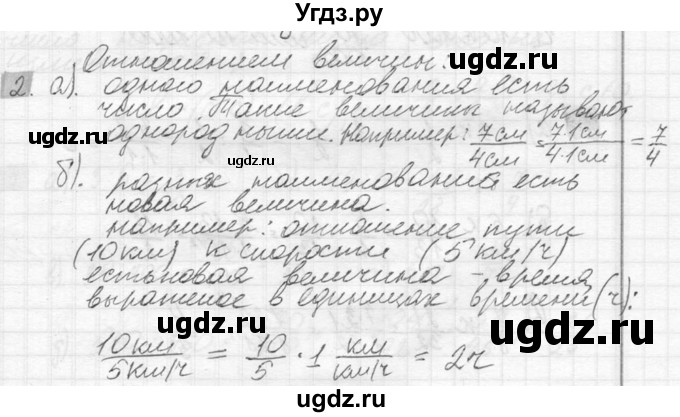 Угдз.ру
Отношением величин.
2. а). одного наименования есть
число. Такие величины называют
однородными. Например: 7см/4см = 7·1см/4·1см = 7/4
б). разных наименований есть
новая величина.
например: отношение пути
(10км) к скорости (5км/ч)
есть новая величина - время,
выраженое в единицах времени (ч):
10км/5км/ч = 10/5 · 1 км/км/ч = 2ч
ugdz.ru ugdz.ru
ugdz.ru ugdz.ru
ugdz.ru ugdz.ru
ugdz.ru ugdz.ru
ugdz.ru